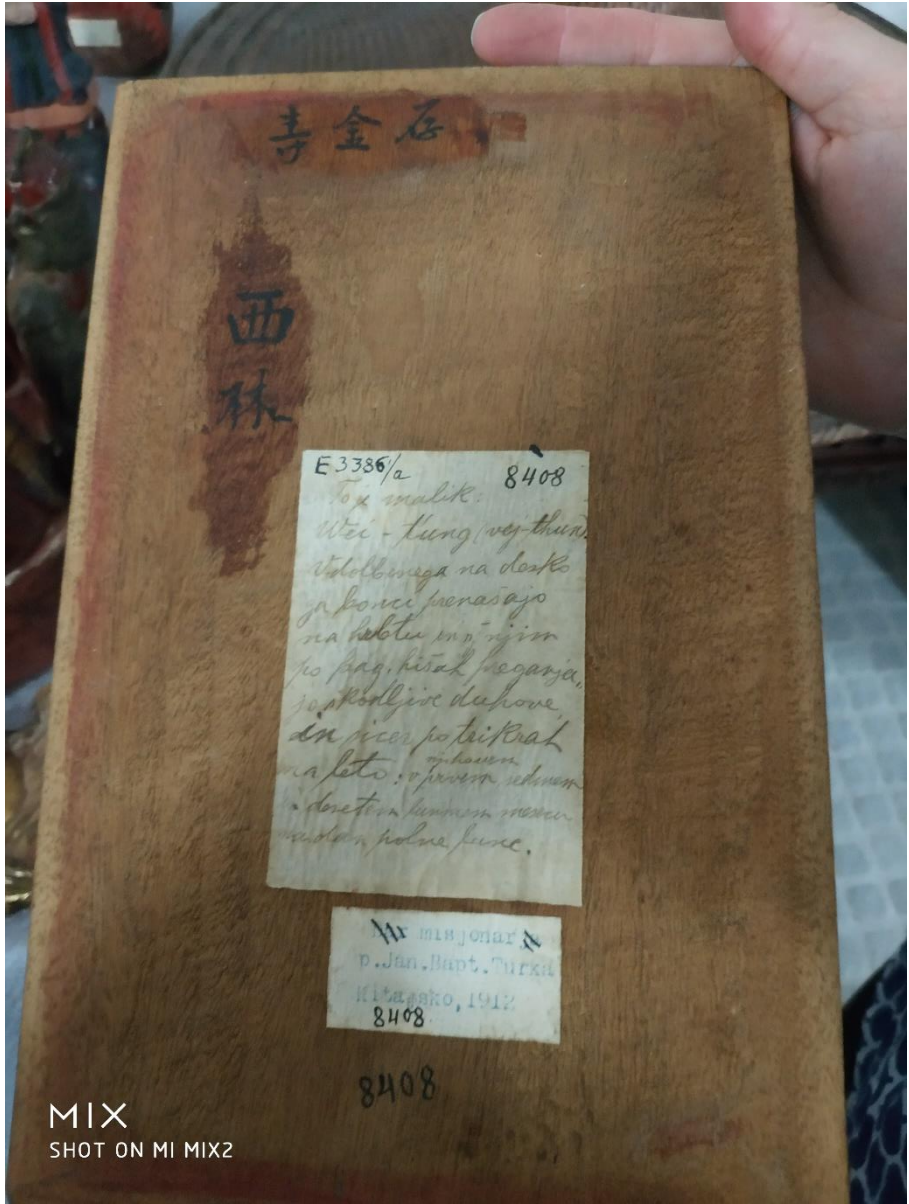 壽金存
西
林
E 3386/a 8408
To je malik:
Wei - t'ung (vej-thun).
Vdolbenega na desko
ga bonci prenašajo
na hrbtu in z njim
po pag. hišah preganja-
jo škodljive duhove
in sicer po trikrat
na leto: v prvem sedmem
njihovem
desetem luninem mesecu
na dan polne lune.
misjonar
p.Jan.Bapt.Turka
Kitajsko, 1912
8408
8408
MIX
SHOT ON MI MIX2